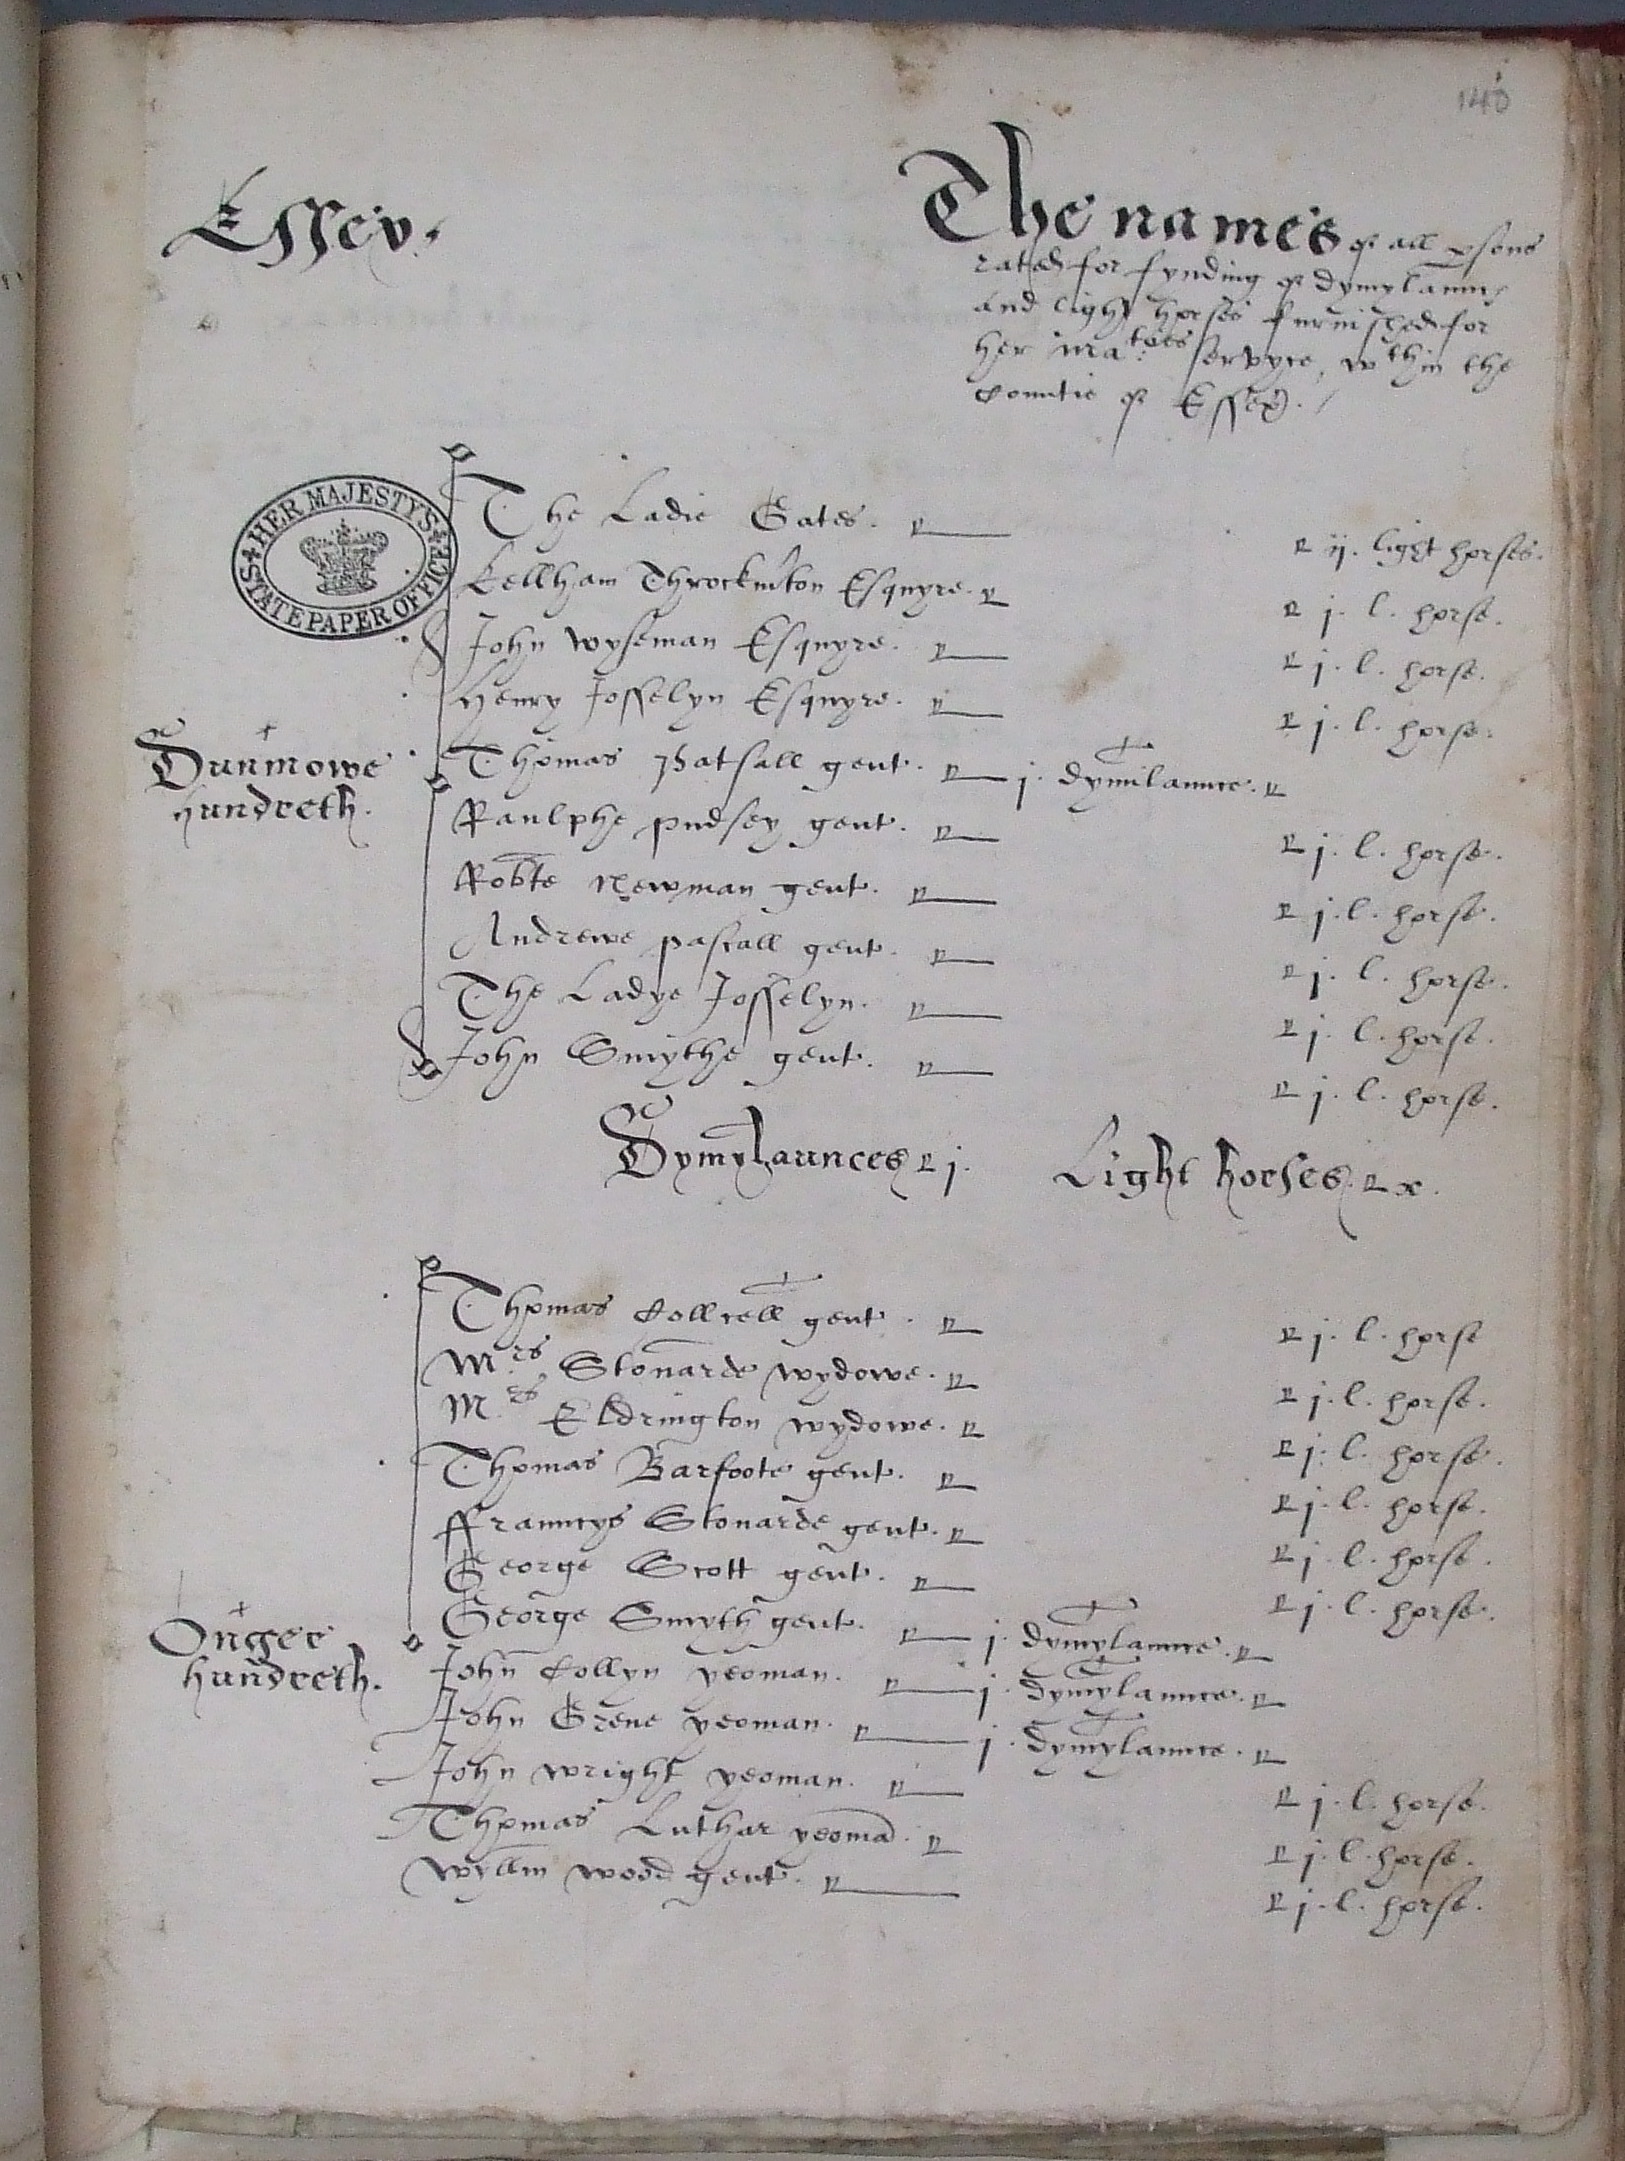 140
Essex.
The names of all psons
rated for fynding of dymylaunces
and light horses furnished for
her Ma:ties servyce, wthin the
Countie of Essex.
HER MAJESTY'S STATE PAPER OFFICE
The Ladie Gates. ij. light horses.
Kellham Throckmton Esquyre. j. l. horse.
John Wyseman Esquyre. j. l. horse.
Henry Josselyn Esquyre. j. l. horse.
Dunmowe hundreth.
Thomas Patsall gent. j. dymilaunce.
Raulphe Pudsey gent. j. l. horse.
Robte Newman gent. j. l. horse.
Andrewe Pascall gent. j. l. horse.
The Ladye Josselyn. j. l. horse.
John Smythe gent. j. l. horse.
Dymylaunces j. Light horses. x.
Thomas Collcell gent. j. l. horse
Mrs Stonarde wydowe. j. l. horse.
Mrs Eldrington wydowe. j. l. horse.
Thomas Barfoote gent. j. l. horse.
ffrauncys Stonarde gent. j. l. horse.
George Scott gent. j. l. horse.
Onger hundreth.
George Smyth gent. j. dymylaunce.
John Collyn yeoman. j. dymylaunce.
John Grene yeoman. j. dymylaunce.
John Wright yeoman. j. l. horse.
Thomas Luthar yeoma. j. l. horse.
Wyllm Wood gent. j. l. horse.